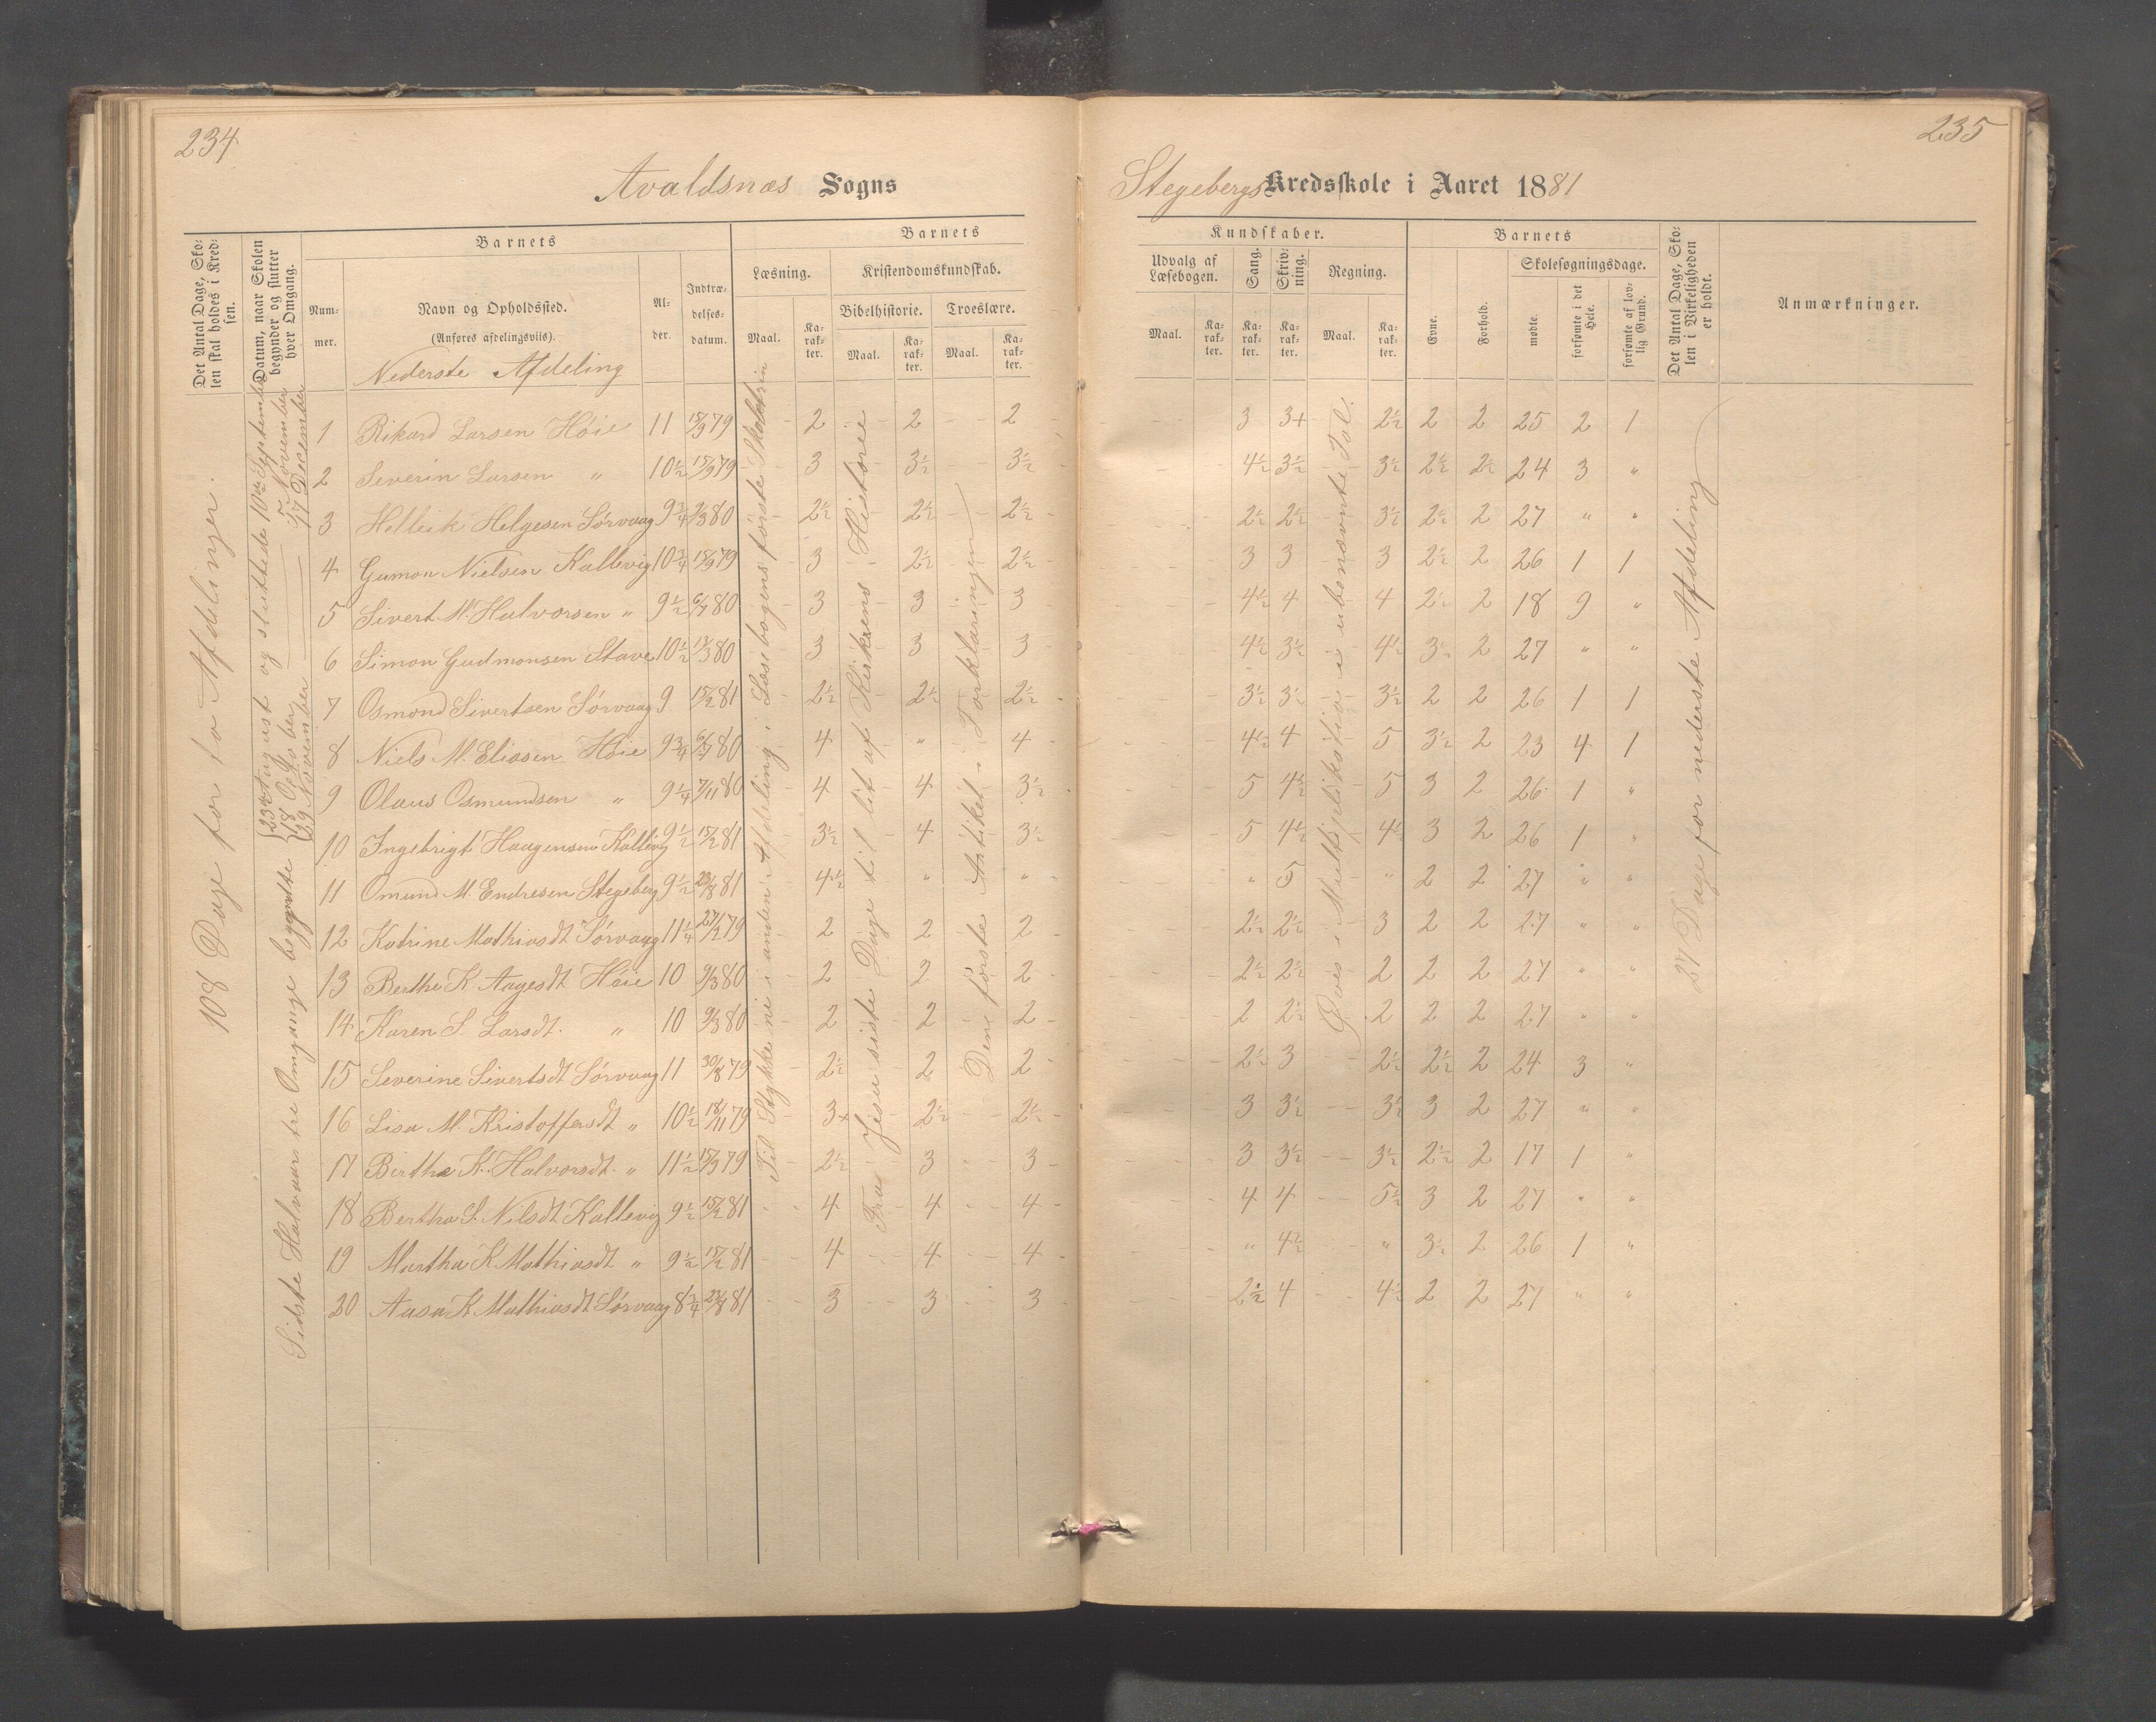 234
Avaldsnæs Sogns
Det Antal Dage, Sko-
len skal holdes i Kred-
sen.
Datum, naar Skolen
begynder og slutter
hver Omgang.
Barnets
Num-
mer.
Navn og Opholdssted.
(Anføres afdelingsviis).
Nederste Afdeling
Al-
der.
Indtræ-
delses-
datum.
Barnets
Læsning.
Maal.
Ka-
rak-
ter.
Kristendomskundskab.
Bibelhistorie.
Maal.
Ka-
rak-
ter.
Troeslære.
Maal.
Ka-
rak-
ter.
108 Dage for to Afdelinger.
Sidste Halvaars tre Omgange begyndte { 23de August og sluttede 10de September
18 Oktober — 5 November
29 November — 17 December
Til Stykke ne i anden Afdeling i Læsebogens første Skoletrin
Fra Jesu siste Dage til lit af Kirkens Historee
Den første Artikel i Forklaringen
1 Rikard Larsen Høie 11 15/9 79 2 2 2
2 Severin Larsen " 10½ 15/9 79 3 3½ 3½
3 Helleik Helgesen Sørvaag 9¾ 9/3 80 2½ 2½ 2½
4 Gumon Nielsen Kallevig 10¾ 15/9 79 3 2½ 2½
5 Sivert M. Halvorsen " 9½ 6/7 80 3 3 3
6 Simon Gudmonsen Stave 10½ 13/3 80 3 3 3
7 Osmond Sivertsen Sørvaag 9 15/2 81 2½ 2½ 2½
8 Niels M. Eliasen Høie 9¾ 6/7 80 4 " 4
9 Olaus Osmundsen " 9¼ 7/11 80 4 4 3½
10 Ingebrigt Haagensen Kallevig 9½ 15/2 81 3½ 4 3½
11 Omund M. Endresen Stegeberg 9½ 23/8 81 4½ " "
12 Katrine Mathiasdt Sørvaag 11¼ 27/2 79 2 2 2
13 Berthe K Aagesdt Høie 10 9/3 80 2 2 2
14 Karen S. Larsdt. " 10 9/3 80 2 2 2
15 Severine Sivertsdt Sørvaag 11 30/8 79 2½ 2 2
16 Lisa M. Kristoffersdt " 10½ 18/11 79 3+ 2½ 2½
17 Birthe K. Halvorsdt. " 11½ 15/9 79 2½ 3 3
18 Bertha S. Nilsdt Kallevig 9½ 15/2 81 4 4 4
19 Martha K Mathiasdt " 9½ 15/2 81 4 4 4
20 Aasa K Mathiasdt Sørvaag 8¾ 23/8 81 3 3 3
235
Stegebergs Kredsskole i Aaret 1881
Kundskaber.
Udvalg af
Læsebogen.
Maal.
Ka-
rak-
ter.
Sang.
Ka-
rak-
ter.
Skriv-
ning.
Ka-
rak-
ter.
Regning.
Maal.
Ka-
rak-
ter.
Barnets
Evne.
Forhold.
Skolesøgningsdage.
mødte.
forsømte i det
Hele.
forsømte af lov-
lig Grund.
Det Antal Dage, Sko-
len i Virkeligheden
er holdt.
Anmærkninger.
Øves i Multiplikation i ubenævnte Tal.
27 Dage for nederste Afdeling
3 3+ 2½ 2 2 25 2 1
4½ 3½ 3½ 2½ 2½ 24 3 "
2½ 2½ 3½ 2½ 2 27 " "
3 3 3 2½ 2 26 1 1
4½ 4 4 2½ 2 18 9 "
4½ 3½ 4½ 3½ 2 27 " "
3½ 3½ 3½ 2 2 26 1 1
4½ 4 5 3½ 2 23 4 1
5 4½ 5 3 2 26 1 "
5 4½ 4½ 3 2 26 1 "
" 5 " 2 2 27 " "
2½ 2½ 3 2 2 27 " "
2½ 2½ 2 2 2 27 " "
2 2½ 2 2 2 27 " "
2½ 3 2½ 2½ 2 24 3 "
3 3½ 3½ 3 2 27 " "
3 3½ 3½ 2½ 2 17 1 "
4 4 5½ 3 2 27 " "
" 4½ " 3½ 2 26 1 "
2½ 4 4½ 2 2 27 " "